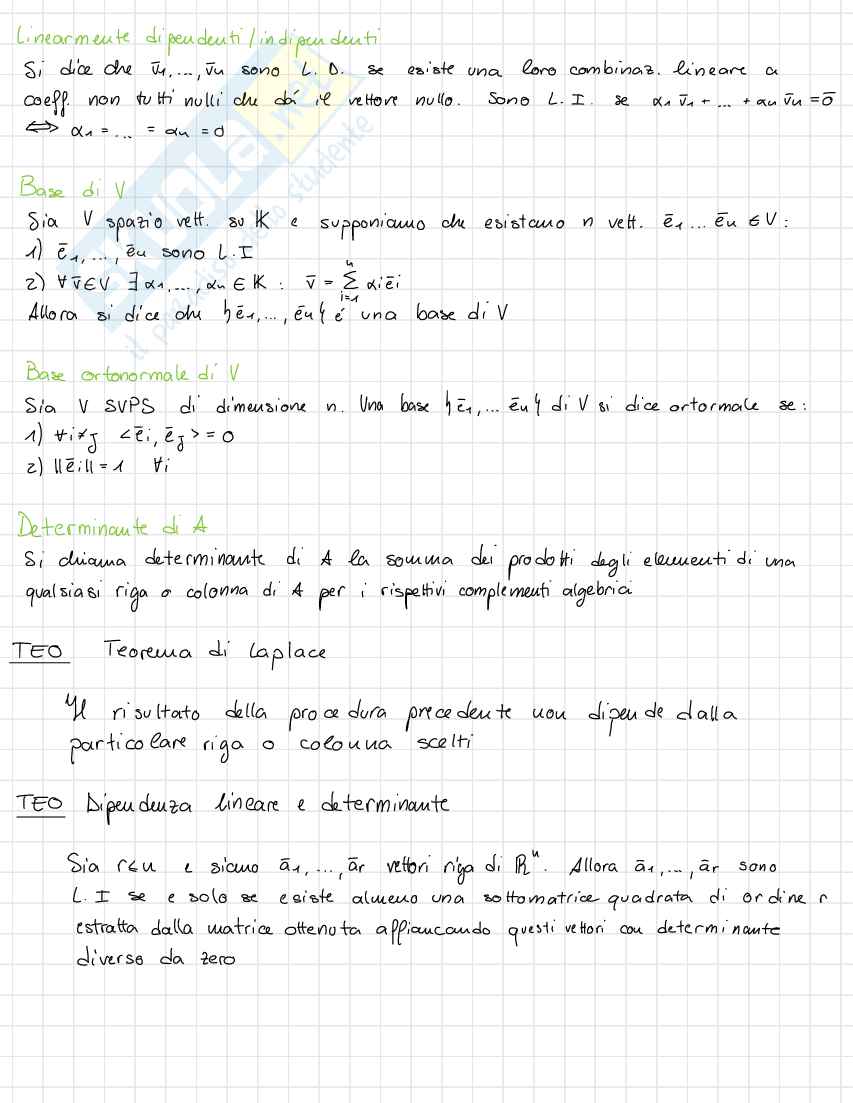 Linearmente dipendenti/indipendenti
Si dice che v̄1, ..., v̄n sono L.D. se esiste una loro combinaz. lineare a
coeff. non tutti nulli che dá il vettore nullo. Sono L.I. se α1 v̄1 + ... + αn v̄n = ō
⟺ α1 = ... = αn = 0
Base di V
Sia V spazio vett. su K e supponiamo che esistano n vett. ē1 ... ēn ∈ V:
1) ē1, ..., ēn sono L.I
2) ∀ v̄ ∈ V ∃ α1, ..., αn ∈ K : v̄ = Σ_{i=1}^{n} αi ēi
Allora si dice che {ē1, ..., ēn} é una base di V
Base ortonormale di V
Sia V SVPS di dimensione n. Una base {ē1, ... ēn} di V si dice ortormale se:
1) ∀ i≠J <ēi, ēJ> = 0
2) ||ēi|| = 1 ∀i
Determinante di A
Si chiama determinante di A la somma dei prodotti degli elementi di una
qualsiasi riga o colonna di A per i rispettivi complementi algebrici
TEO Teorema di Laplace
Il risultato della procedura precedente non dipende dalla
particolare riga o colonna scelti
TEO Dipendenza lineare e determinante
Sia r≤n e siano ā1, ..., ār vettori riga di R^n. Allora ā1, ..., ār sono
L.I se e solo se esiste almeno una sottomatrice quadrata di ordine r
estratta dalla matrice ottenuta affiancando questi vettori con determinante
diverso da zero
SKUOLA.net
il paradiso dello studente